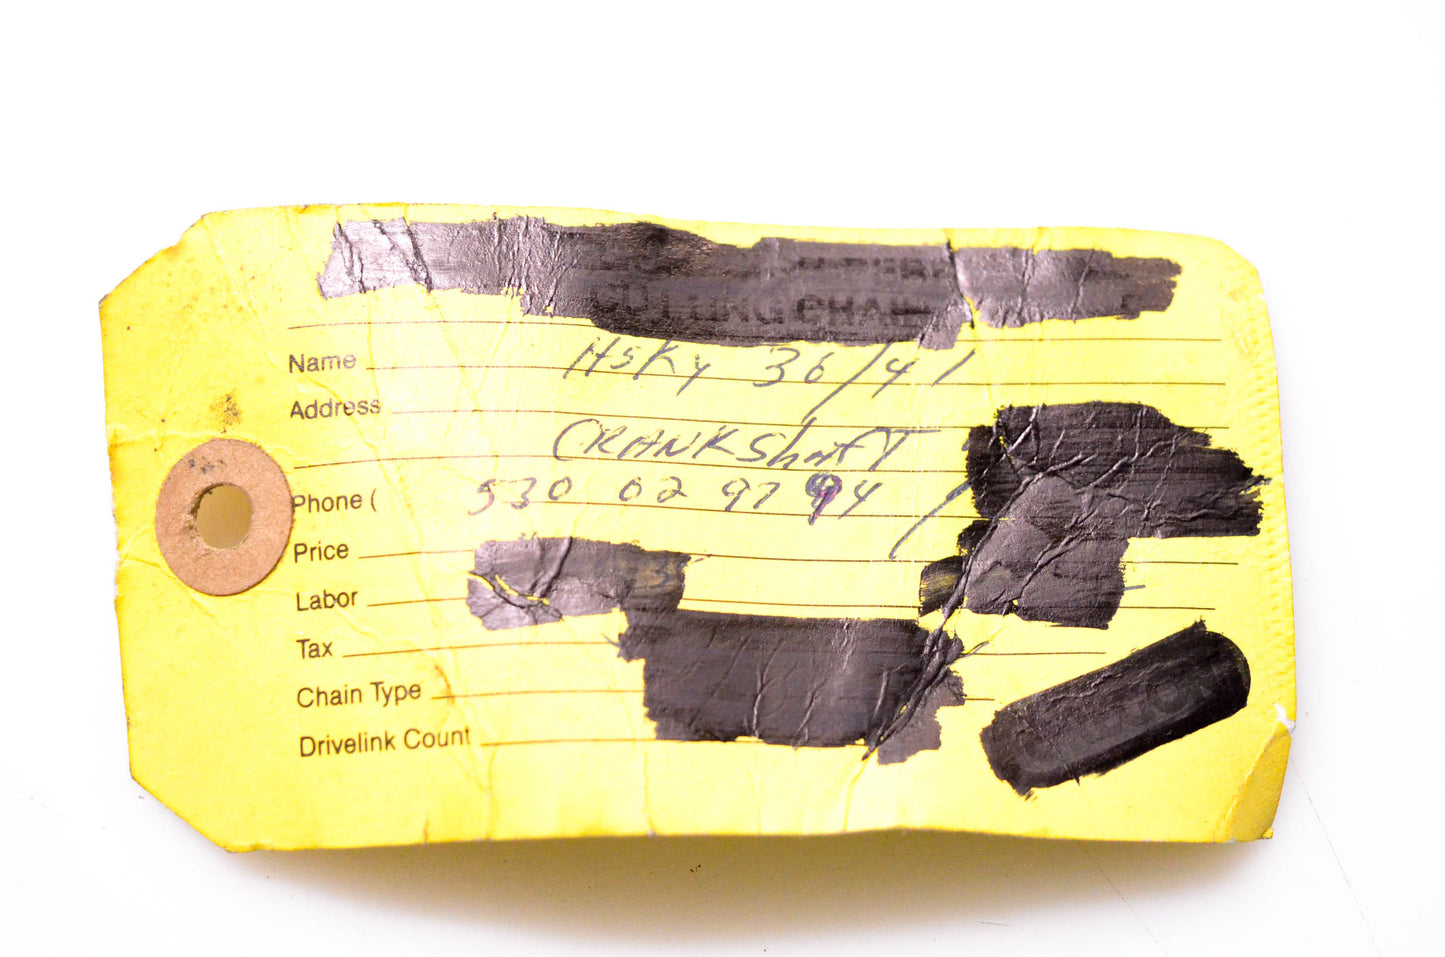 CUTTING CHAIN
Name Hsky 36/41
Address
CRANKShafT
Phone ( 530 02 97 94 /
Price
Labor
Tax
Chain Type
Drivelink Count